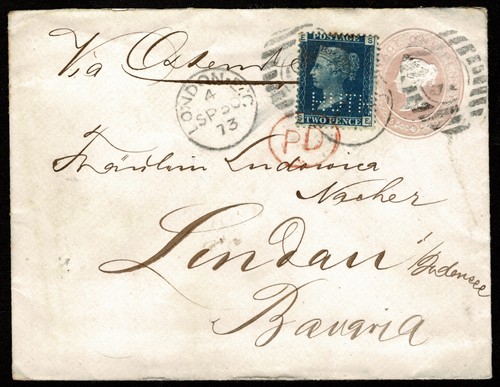 Via Ostende
POSTAGE
TWO PENCE
LONDON W.C
4
SP
73
PD
Fräulein Ludovica
Nacher
Lindau i/Bodensee
Bavaria